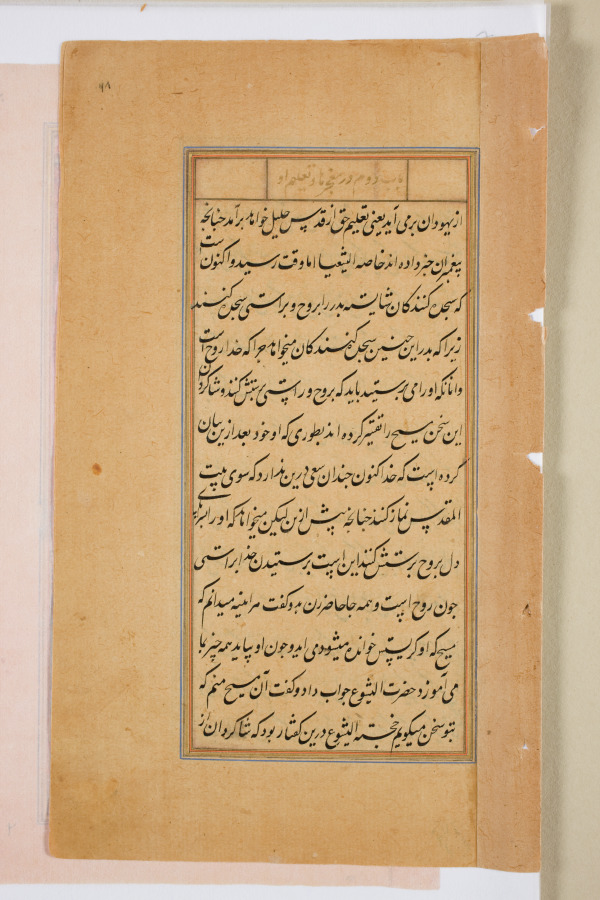 ۶۸
باب دوم در معجزها و تعلیم او
از یهودان برمی آید یعنی تعلیم حق از قدس جلیل خواهد برآمد چنانچه
پیغمبران خبر داده اند خاصه الیشعیا اما وقت رسید و اکنون است
که سجده کنندکان شایسته پدر را بروح و براستی سجده کنند
زیرا که پدر این چنین سجده کنندکان میخواهد چرا که خدا روح است
و آنانکه او را می پرستید باید که بروح و راستی پرستش کنند و شاکردان
این سخن مسیح را تفسیر کرده اند بطوری که او خود بعد ازین بیان
کرده است که خدا اکنون چندان سعی درین ندارد که سوی بیت
المقدس نماز کنند چنانچه پیش ازین لیکن میخواهد که او را براستی
دل بروح پرستش کنند این است پرستیدن خدا براستی
چون روح است و همه جا حاضر زن بدو کفت هر اینه میدانم که
مسیح که او کریستس خوانده میشود می آید و چون او بیاید همه چیز بما
می آموزد حضرت الیشوع جواب داد و کفت آن مسیح منم که
بتو سخن میکویم خجسته الیشوع درین کفتار بود که شاکردان از